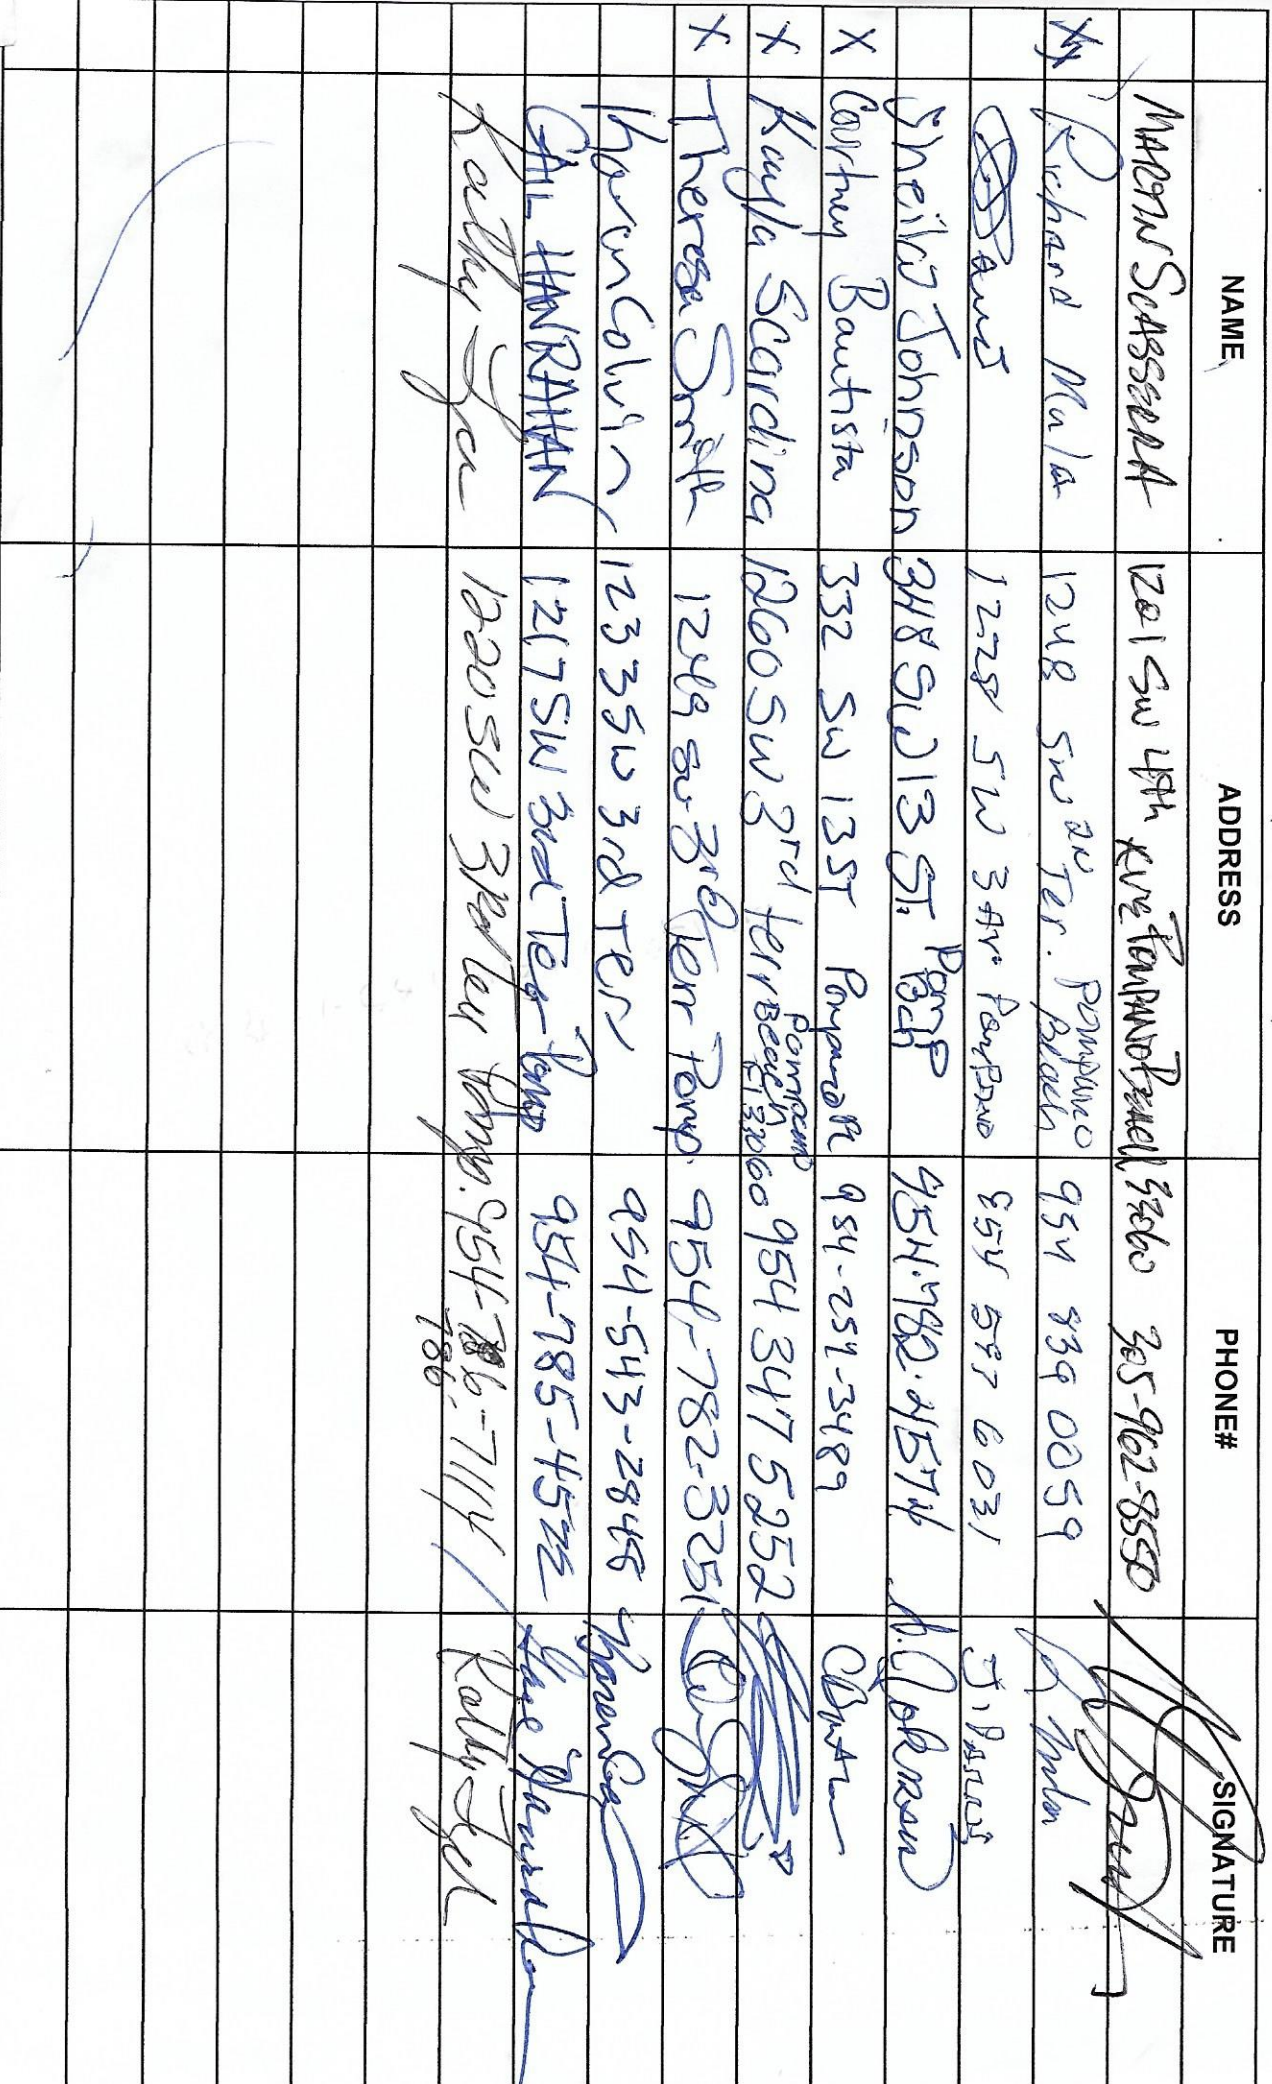 NAME ADDRESS PHONE# SIGNATURE
MARTIN SCASSERRA 1201 SW 4th AVE POMPANO BEACH 33060 305-962-8550
XX Richard Mula 1248 SW 2ND Ter. Pompano Beach 954 839 0059
1228 SW 3 AV. POMPANO 854 597 6031 J. PARRIS
Sheila Johnson 348 SW 13 ST. Pomp Bch 954.782.4574 S. Johnson
X Courtney Bautista 332 SW 13 ST Pompano 954-254-3489
X Kayla Scardina 1260 SW 3rd terr Pompano Beach Fl 33060 954 347 5252
X Theresa Smith 1249 SW 3rd Terr Pomp. 954-782-3251
Karen Colvin 1233 SW 3rd Ter 954-543-2848
GAIL HANRAHAN 1217 SW 3rd Ter Pomp 954-785-4572 Gail Hanrahan
Kathy 1220 SW 3rd ter Pomp. 954-786-7114 Kathy
786